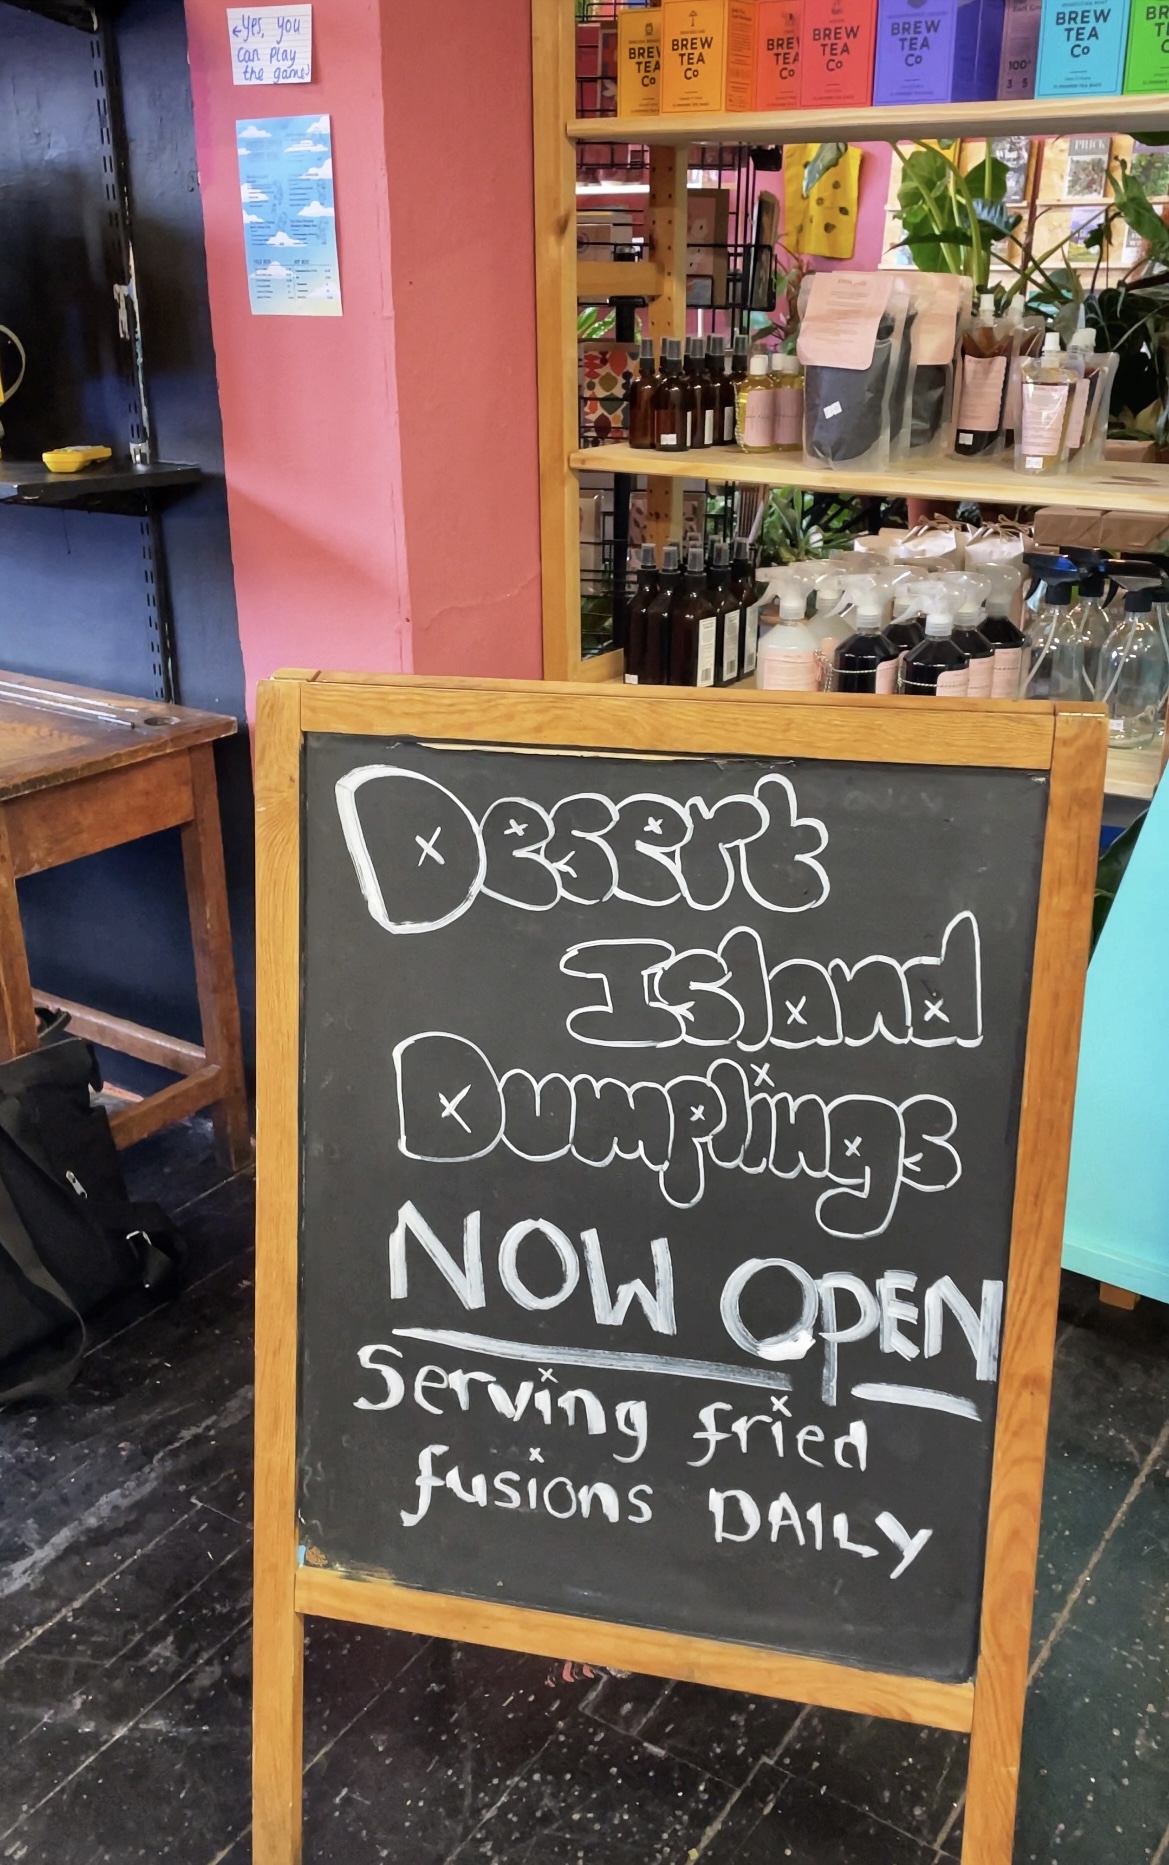 ←Yes, you
can play
the games
BREW
TEA
Co
BREW
TEA
Co
BREW
TEA
Co
BREW
TEA
Co
BREW
TEA
Co
BREW
TEA
Co
PRICK
Desert
Island
Dumplings
NOW OPEN
Serving fried
fusions DAILY